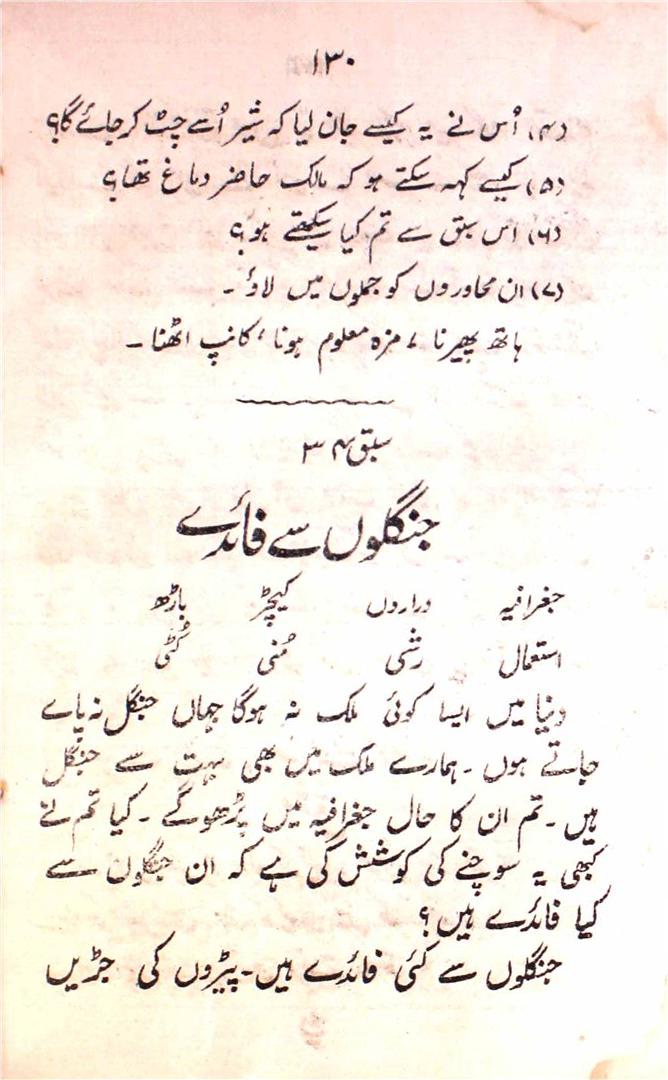 ۱۳۰
(۴) اُس نے یہ کیسے جان لیا کہ شیر اُسے چٹ کر جائے گا؟
(۵) کیسے کہہ سکتے ہو کہ مالک حاضر دماغ تھا؟
(۶) اس سبق سے تم کیا سیکھتے ہو؟
(۷) ان محاوروں کو جملوں میں لاؤ ۔
ہاتھ پھیرنا ، مزہ معلوم ہونا ، کانپ اٹھنا ۔
سبق ۳۴
جنگلوں سے فائدے
جغرافیہ دراروں کیچڑ باڑھ
استعمال رشی مُنی کُٹی
دنیا میں ایسا کوئی ملک نہ ہوگا جہاں جنگل نہ پائے
جاتے ہوں ۔ ہمارے ملک میں بھی بہت سے جنگل
ہیں ۔ تم ان کا حال جغرافیہ میں پڑھوگے ۔ کیا تم نے
کبھی یہ سوچنے کی کوشش کی ہے کہ ان جنگلوں سے
کیا فائدے ہیں ؟
جنگلوں سے کئی فائدے ہیں ۔ پیڑوں کی جڑیں